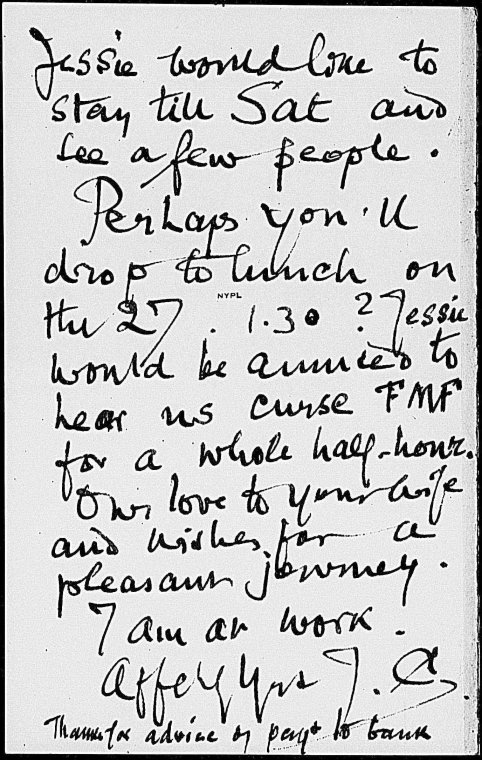 Jessie would love to
stay till Sat and
see a few people.
Perhaps you'll
drop to lunch on
NYPL
the 27. 1.30 ? Jessie
would be amused to
hear us curse FMF
for a whole half-hour.
Our love to your wife
and wishes for a
pleasant journey.
I am at work.
Affecly Yrs J. C.
Thanks for advice of payt to bank